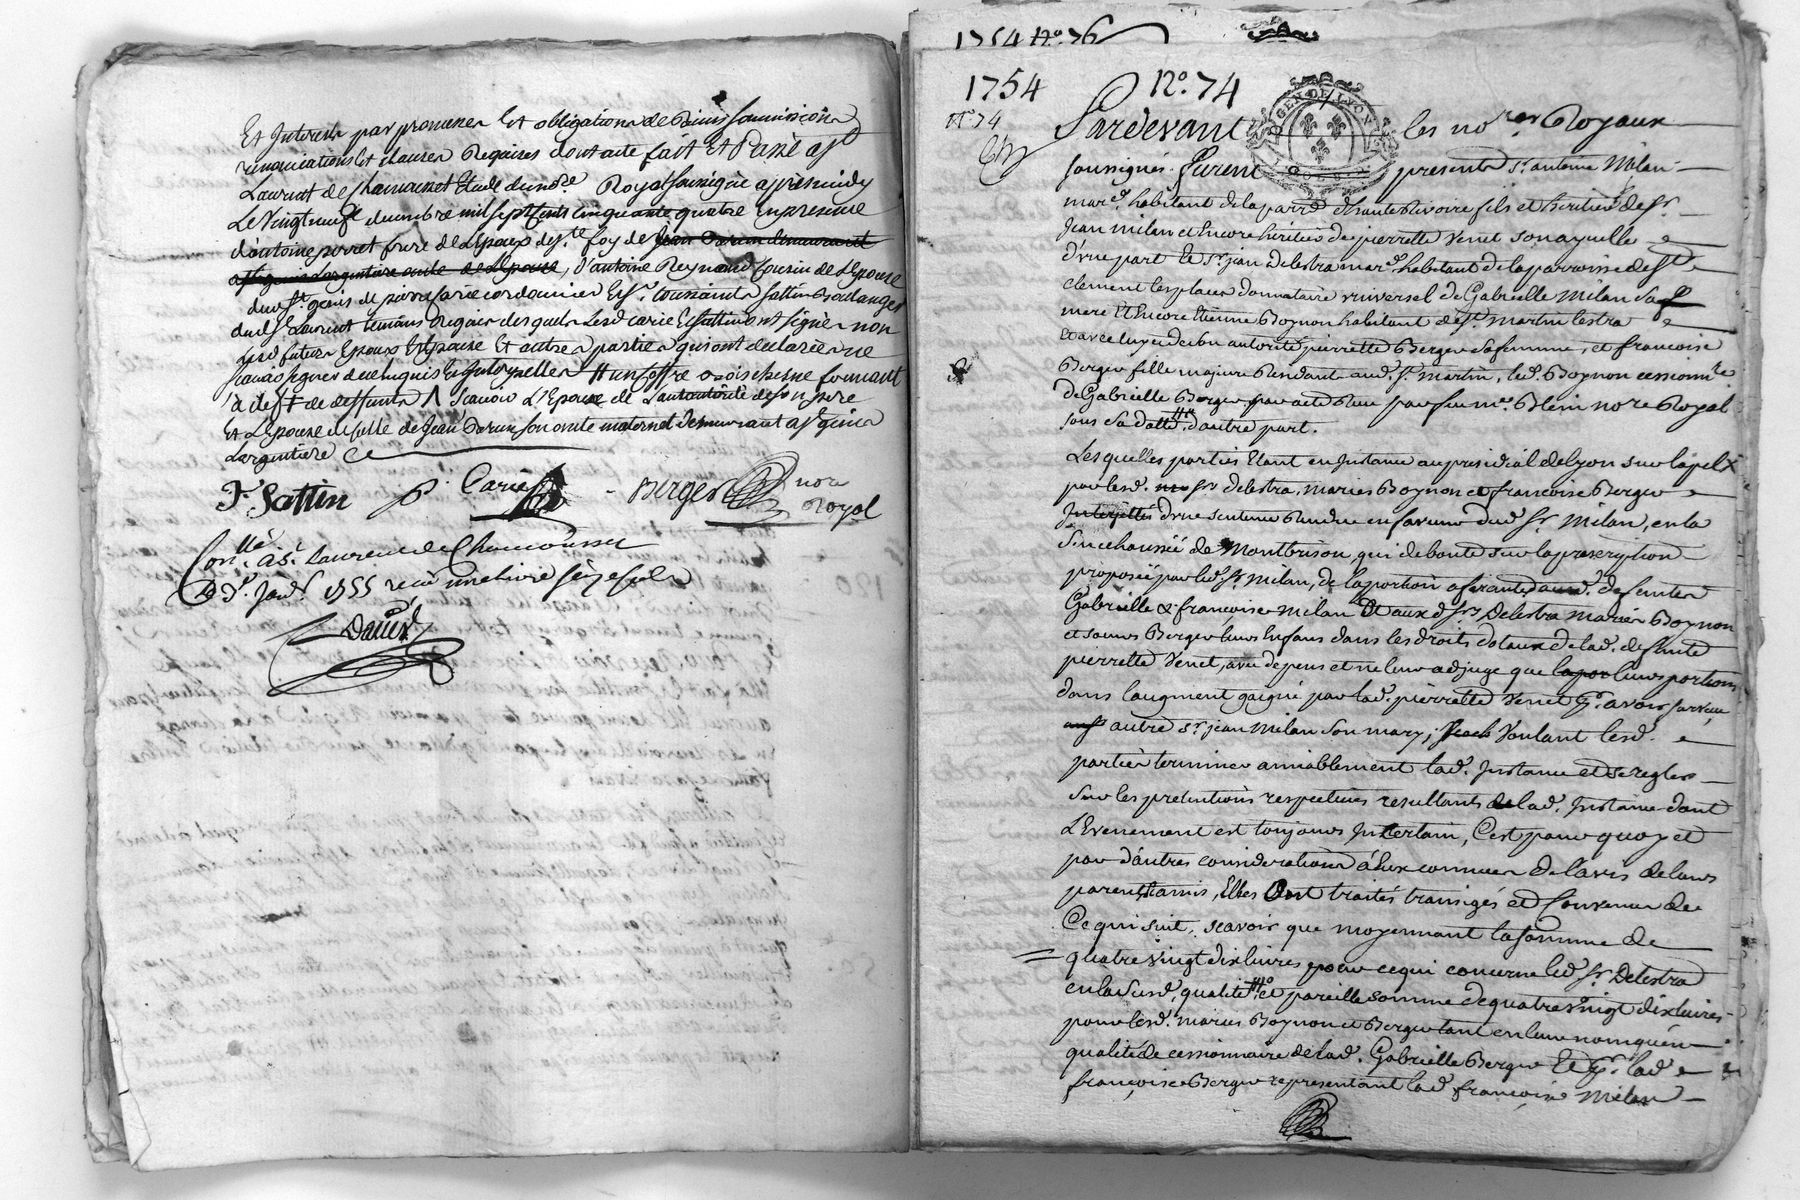 Et Interests par promesses Et obligations de Biens soumissions
renonciations Et clauses Requises dont acte fait Et Passé a St
Laurent de chamousset Etude du no.re Royal soussigné apres midy
Le vingt neuf decembre mil sept cents cinquante quatre En presence
d'antoine perret frere de L'epoux de S.te foy de Jean Barun demeurant
a St genis L'argentiere oncle de L'epouse, d'antoine Reynaud Cousin de L'epouse
dud St. genis de pierre carie cordonnier Et S.r toussaints Sattin Boulanger
dud St Laurent temoins Requis desquels Lesd carie Et sattin ont signé non
Lesd futurs Epoux Et Epouse Et autres parties qui ont declarées ne
scavoir signer de ce Enquis Et Interpellés # un coffre bois chesne fermant
a clef de deffunts Λ scavoir L'Epoux de L'autorité de son pere
Et L'epouse de celle de Jean Barun son oncle maternel demeurant a St genis
Largentiere
J. Sattin P. Carie Berger nore
Royal
Con.llé a St. Laurent de Chamousset
Le 9.e Janv. 1755 recu une livre seize sols
David
1754 N.o 76
1754 N.o 74
N.o 74
Pardevant les no.res Royaux
soussignés furent presents S.r antoine Milan
mar.d habitant de la parr.e d'haute Rivoire fils et heritier de S.r
Jean milan et Encore heritier de pierrette Venet son ayeulle
d'une part le S.r jean delestra mar.d habitant de la parroisse de St
clement les places donnataire universel de Gabrielle Milan sa
mere Et Encore Etienne Boynon habitant de St. Martin lestra
et avec luy et de son autorité pierrette Berger sa femme, et francoise
Berger fille majeure Residant aud. St. martin, led. Boynon cessionn.re
de Gabrielle Berger par acte Receu par feu m.e Blein no.re Royal
sous sa datte, d'autre part.
Lesquelles parties Etant en Instance au presidial de lyon sur l'apel
par lesd. srs delestra, mariés Boynon et francoise Berger
Interjettés d'une sentence Rendue en faveur dud S.r Milan, en la
Senechaussée de Montbrison, qui deboute sur la prescription
proposée par led. S.r Milan, de la portion aferante aux d. defuntes
Gabrielle & francoise milan Et aux d Srs Delestra mariés Boynon
et soeurs Berger leurs Enfans dans les droits dotaux de lad. defunte
pierrette Venet, avec depens et ne leur adjuge que leurs portions
dans l'augment gagné par lad. pierrette Venet p.r avoir survecu
autre S.r jean Milan son mary; Voulant lesd.
parties terminer amiablement lad. Instance et se regler
sur les pretentions respectives resultants de lad. Instance dont
L'Evenement est toujours Incertain, C'est pour quoy et
par d'autres considerations a Eux connues De l'avis de leurs
parents & amis, Elles Ont traités transigés et Convenus de
Ce qui suit, scavoir que moyennant la somme de
quatre vingt dix livres pour ce qui concerne led. S.r Delestra
en la susd. qualité # et pareille somme de quatre vingt dix livres
pour lesd. mariés Boynon et Berger tant en leur nom qu'en
qualité de cessionnaire de lad. Gabrielle Berger Et p.r lad
francoise Berger representant lad francoise Milan